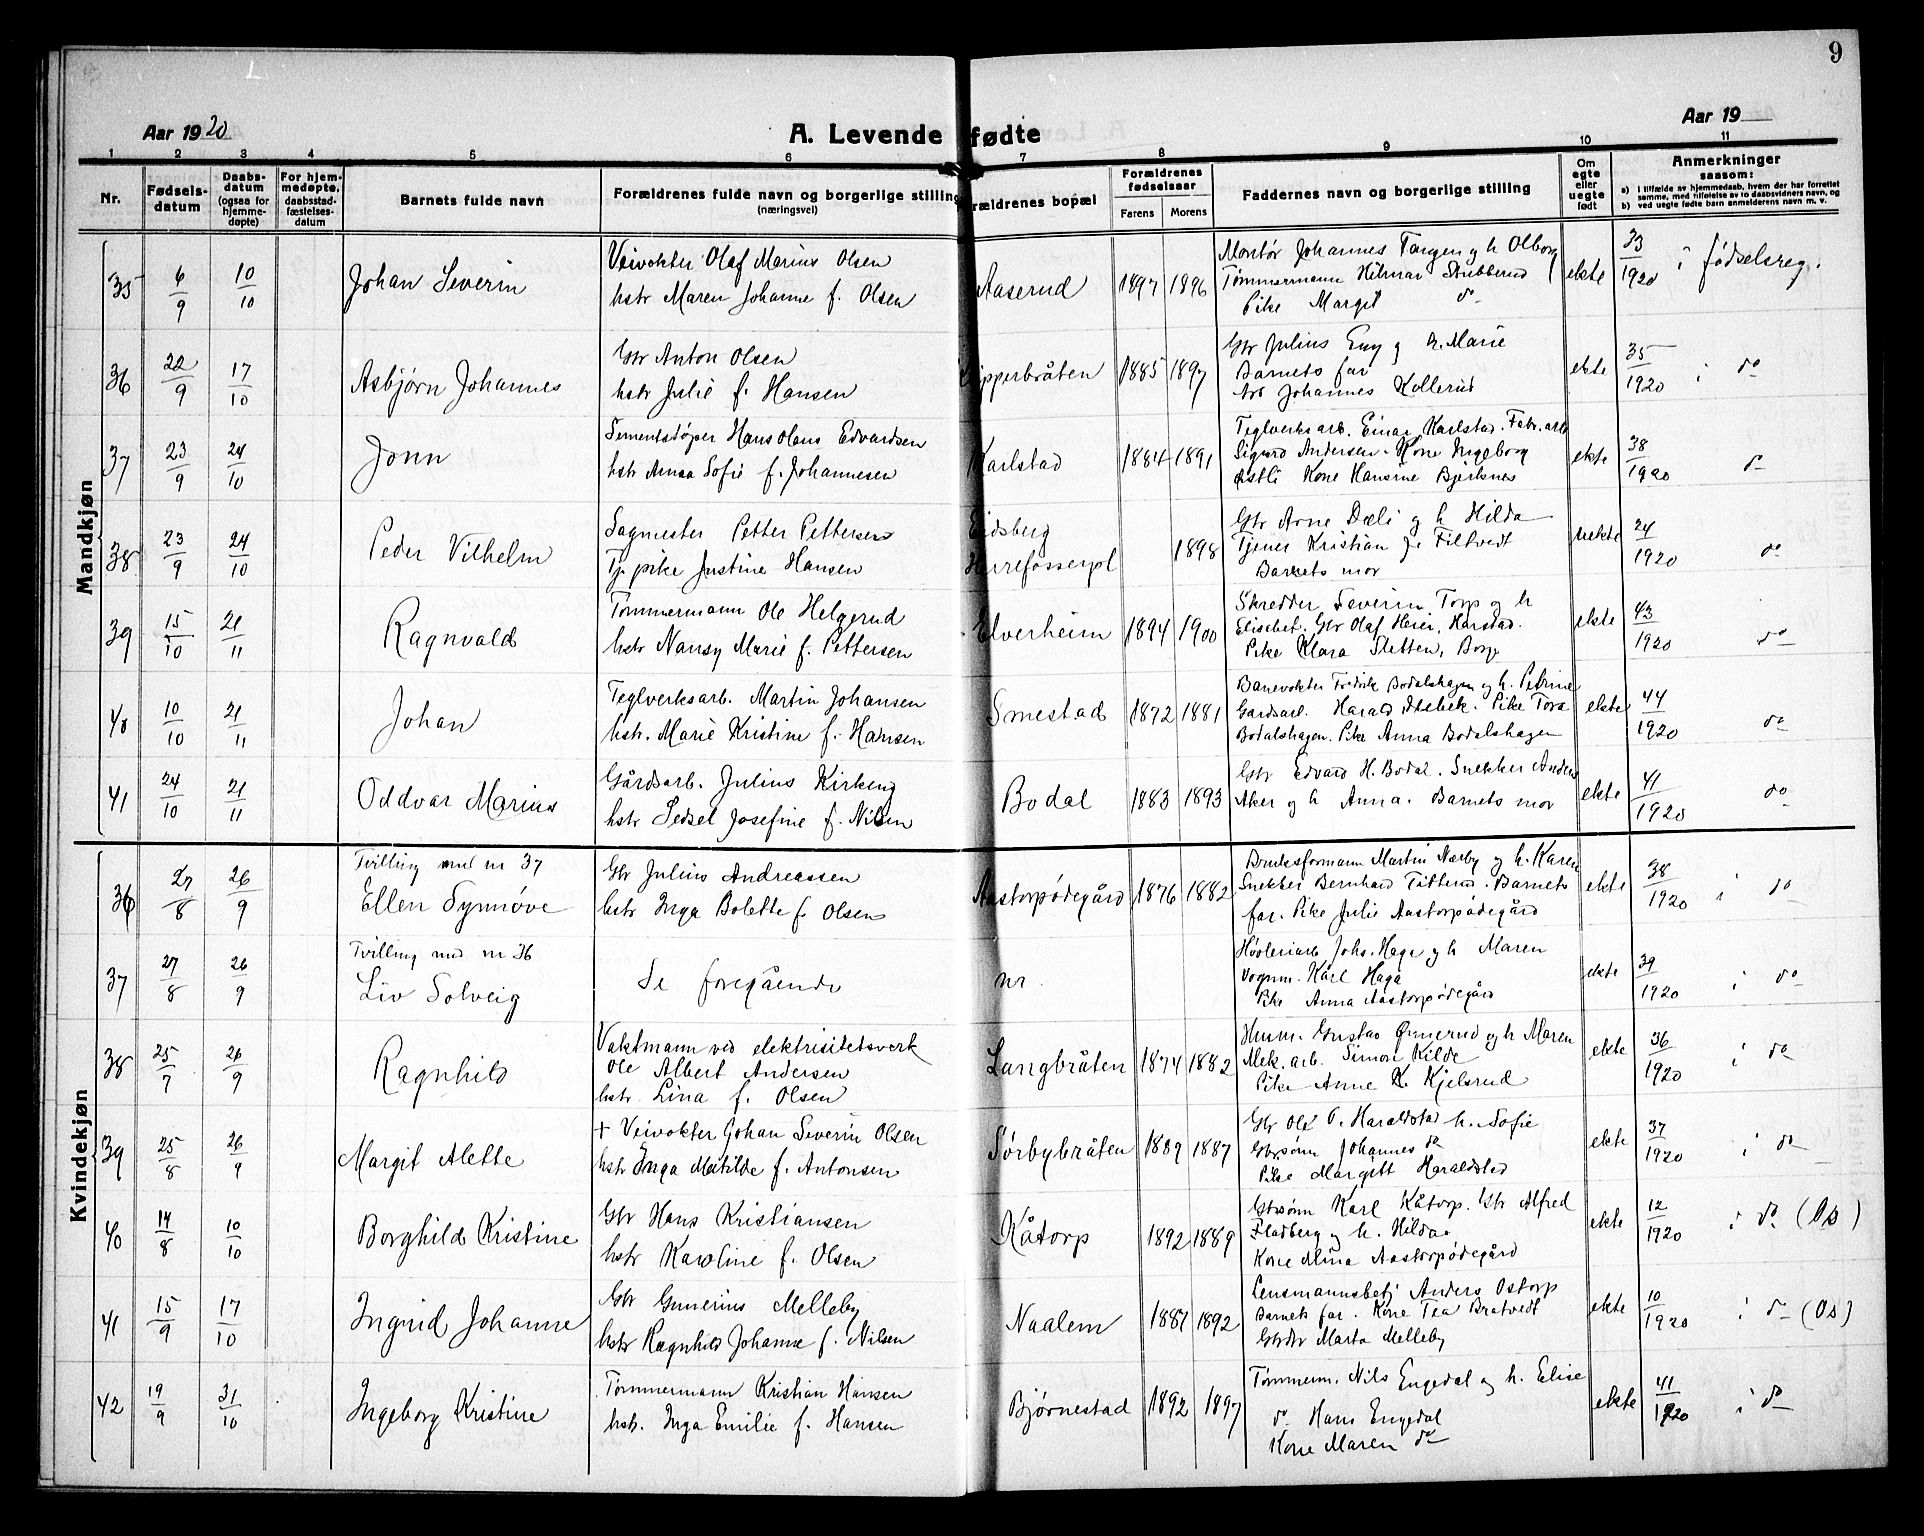 9
Aar 1920
A. Levende fødte
Aar 19
1 2 3 4 5 6 7 8 9 10 11
Nr.
Fødsels-
datum
Daabs-
datum
(ogsaa for
hjemme-
døpte)
For hjem-
medøpte,
daabsstad-
fæstelses-
datum
Barnets fulde navn
Forældrenes fulde navn og borgerlige stilling
(næringsvei)
rældrenes bopæl
Forældrenes
fødselsaar
Farens
Morens
Faddernes navn og borgerlige stilling
Om
egte
eller
uegte
født
Anmerkninger
saasom:
a) I tilfælde av hjemmedaab, hvem der har forrettet
samme, med tilføielse av to daabsvidners navn, og
b) ved uegte fødte barn anmelderens navn m. v.
Mandkjøn
35 6/9 10/10
Johan Severin
Veivokter Olaf Marius Olsen
hstr Maren Johanne f. Olsen
Aaserud
1897 1896
Montør Johannes Tangen og h Olborg
Tømmermann Hilmar Stubberud
Pike Margit do
ekte
33/1920 i fødselsreg.
36 22/9 17/10
Asbjørn Johannes
Gbr Anton Olsen
hstr Julie f. Hansen
ipperbråten
1885 1897
Gbr Julius Eng og h. Marie
Barnets far
Johannes Kollerud
ekte
35/1920 i do
37 23/9 24/10
Jonn
Sementstøper Hans Olaus Edvardsen
hstr Anna Sofie f. Johannesen
Karlstad
1884 1891
Teglverksarb. Einar Karlstad. Fabr.arb
Sigurd Andersen. Kone Ingeborg
Østli Kone Hansine Bjerknes
ekte
38/1920 do
38 23/9 24/10
Peder Vilhelm
Sagmester Petter Pettersen
Tj. pike Justine Hansen
Eidsberg
Herrefossenpl
1898
Gbr Arne Dæli og h Hilda
Tjener Kristian Filtvedt
Barnets mor
uekte
24/1920 do
39 15/10 21/11
Ragnvald
Tømmermann Ole Helgerud
hstr Nansy Marie f. Pettersen
Elverheim
1894 1900
Skredder Severin Torp og h
Elisebet. Gbr Olaf Heier, Harstad.
Pike Klara Sletten, Borge
ekte
43/1920 do
40 10/10 21/11
Johan
Teglverksarb. Martin Johansen
hstr. Marie Kristine f. Hansen
Smestad
1872 1881
Banevokter Fredrik Bodalshagen og h. Petrine
Gardsarb. Harald Pike Tora
Bodalshagen. Pike Anna Bodalshagen
ekte
44/1920 do
41 24/10 21/11
Oddvar Marius
Gårdsarb. Julius Kirkeng
hstr Sedsel Josefine f. Nilsen
Bodal
1883 1893
Gbr Edvard H. Bodal. Snekker Anders
Aker og h Anna. Barnets mor
ekte
41/1920 do
Kvindekjøn
36 27/8 26/9
Tvilling med nr 37
Ellen Synnøve
Gbr Julius Andreassen
hstr Inga Bolette f. Olsen
Aastorpødegård
1876 1882
Bruksformann Martin Nærby og h. Karen
Snekker Bernhard Titterud. Barnets
far. Pike Julie Aastorpødegård
ekte
38/1920 i do
37 27/8 26/9
Tvilling med nr 36
Liv Solveig
Se foregående nr.
Høvleriarb Johs. Haga og h Maren
Vognm. Karl Haga
Pike Anna Aastorpødegård
ekte
39/1920 i do
38 25/7 26/9
Ragnhild
Vaktmann ved elektrisitetsverk
Ole Albert Andersen
hstr. Lina f. Olsen
Langbråten
1874 1882
Husm. Gustav Ørmerud og h Maren
Mek. arb. Simon Kilde
Pike Anne K. Kjelsrud
ekte
36/1920 i do
39 25/8 26/9
Margit Alette
+ Veivokter Johan Severin Olsen
hstr Inga Matilde f. Antonsen
Sørbybråten
1889 1887
Gbr Ole O. Haraldstad h. Sofie
Gbrsønn Johannes do
Pike Margitt Haraldstad
ekte
37/1920 i do
40 14/8 10/10
Borghild Kristine
Gbr Hans Kristiansen
hstr Karoline f. Olsen
Kåtorp
1892 1889
Gbrsønn Karl Kåtorp. Gbr Alfred
Fladberg og h. Hilda
Kone Mina Aastorpødegård
ekte
12/1920 i do (Os)
41 15/9 17/10
Ingrid Johanne
Gbr Gunerius Melleby
hstr Ragnhild Johanne f. Nilsen
Naalem
1887 1892
Lensmannsbetj Anders Ostorp
Barnets far. Kone Tea Bratvedt
Gbrdtr Marta Melleby
ekte
10/1920 i do (Os)
42 19/9 31/10
Ingeborg Kristine
Tømmermann Kristian Hansen
hstr. Inga Emilie f. Hansen
Bjørnestad
1892 1897
Tømmerm. Nils Engedal og h. Elise
do Hans Engedal
Kone Maren do
ekte
41/1920 i do